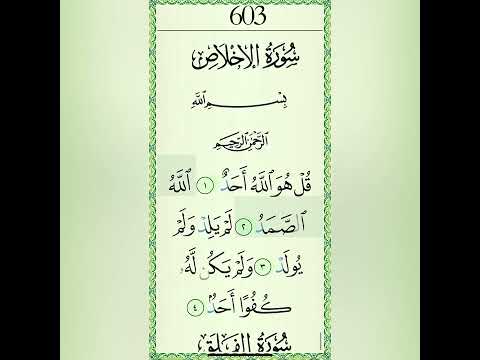 603
سُورَةُ الإِخْلَاصِ
بِسْمِ اللَّهِ
الرَّحْمَٰنِ الرَّحِيمِ
قُلْ هُوَ اللَّهُ أَحَدٌ ١ اللَّهُ
الصَّمَدُ ٢ لَمْ يَلِدْ وَلَمْ
يُولَدْ ٣ وَلَمْ يَكُن لَّهُۥ
كُفُوًا أَحَدٌۢ ٤
سُورَةُ الفَلَقِ